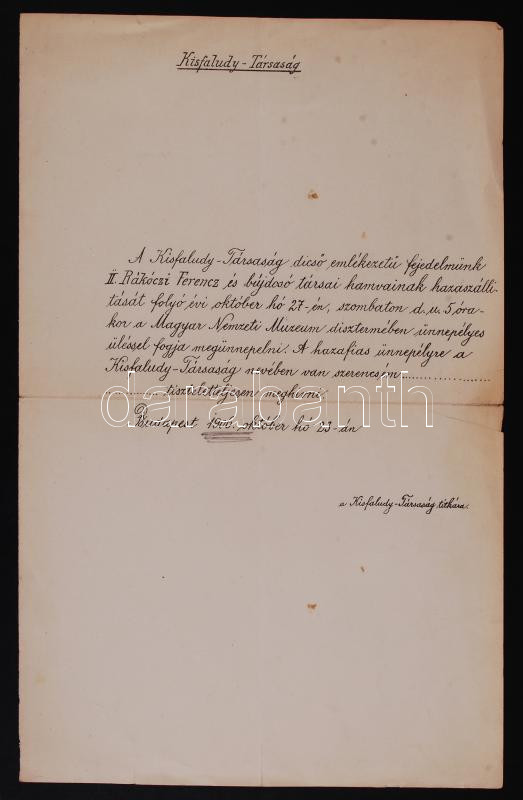 Kisfaludy-Társaság
A Kisfaludy-Társaság dicső emlékezetű fejedelmünk
II. Rákóczi Ferencz és bújdosó társai hamvainak hazaszálli-
tását folyó évi október hó 27-én, szombaton d.u. 5 óra-
kor a Magyar Nemzeti Múzeum disztermében ünnepélyes
üléssel fogja megünnepelni. A hazafias ünnepélyre a
Kisfaludy-Társaság nevében van szerencsém....................
............ tiszteletteljesen meghívni.
darabanth
Budapest, 1906. október hó 23-án
a Kisfaludy-Társaság titkára.